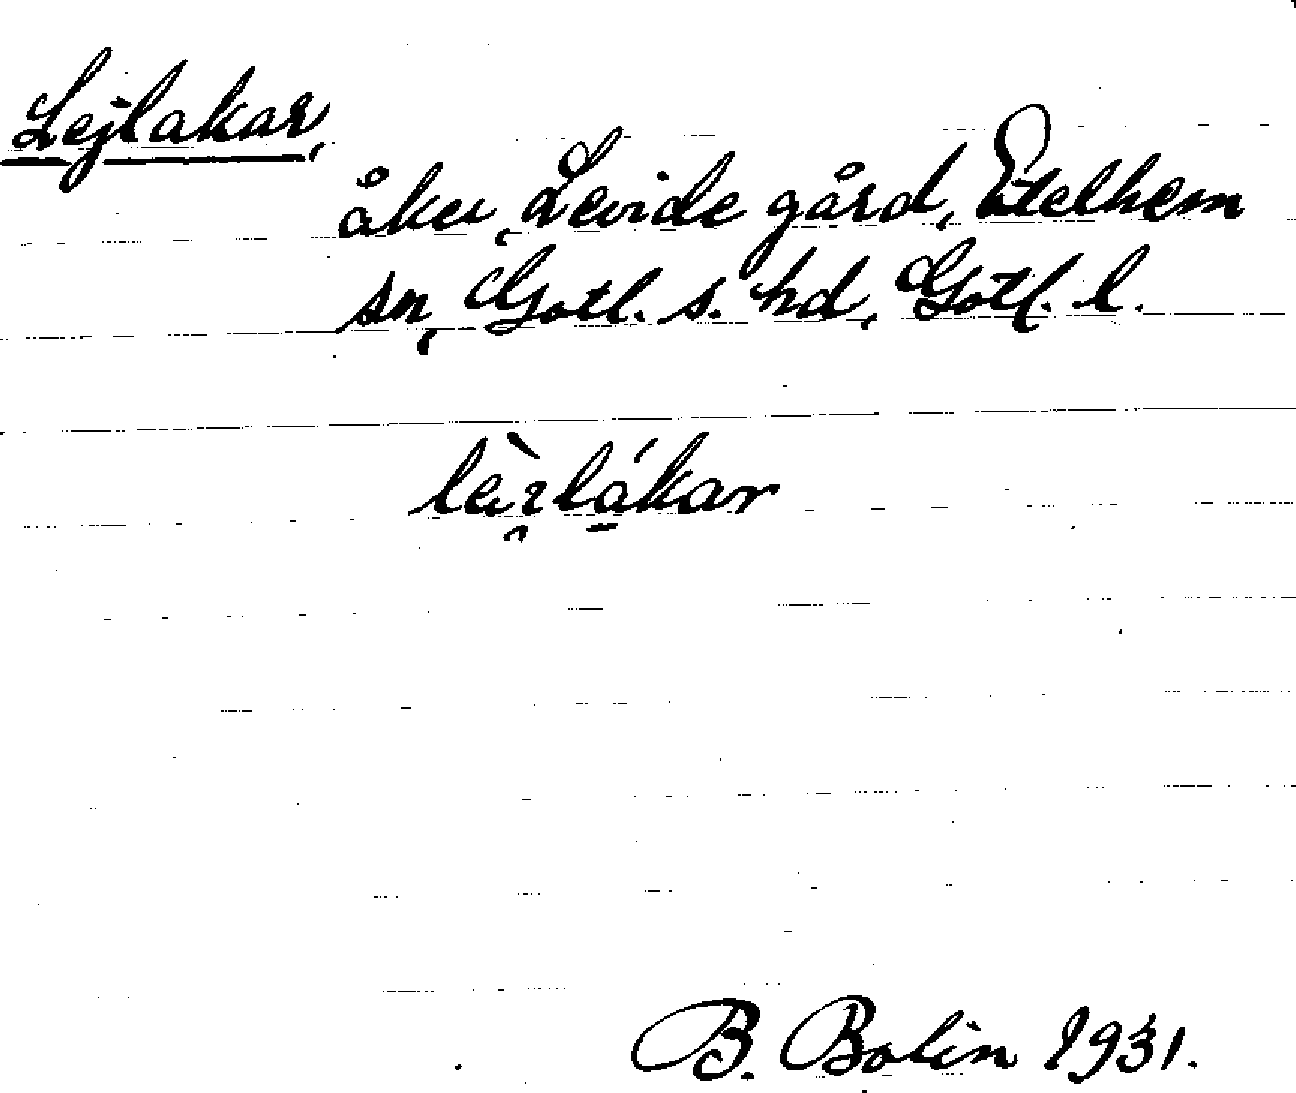 Lejlakar,
åker, Levide gård, Etelhem
sn, Gotl. s. hd, Gotl. l.
B. Bolin 1931.